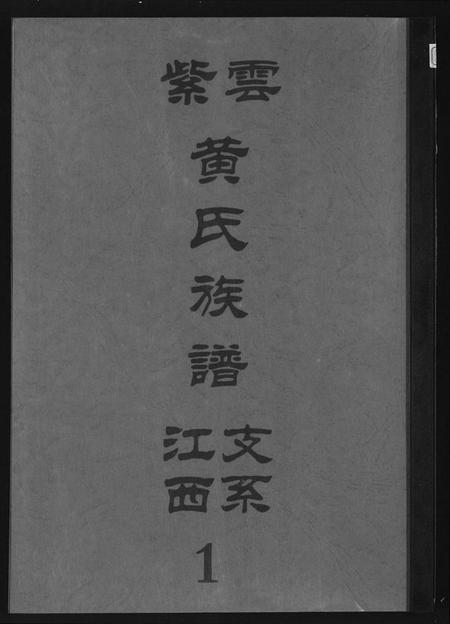 紫雲
黄
氏
族
譜
江支
西系
1